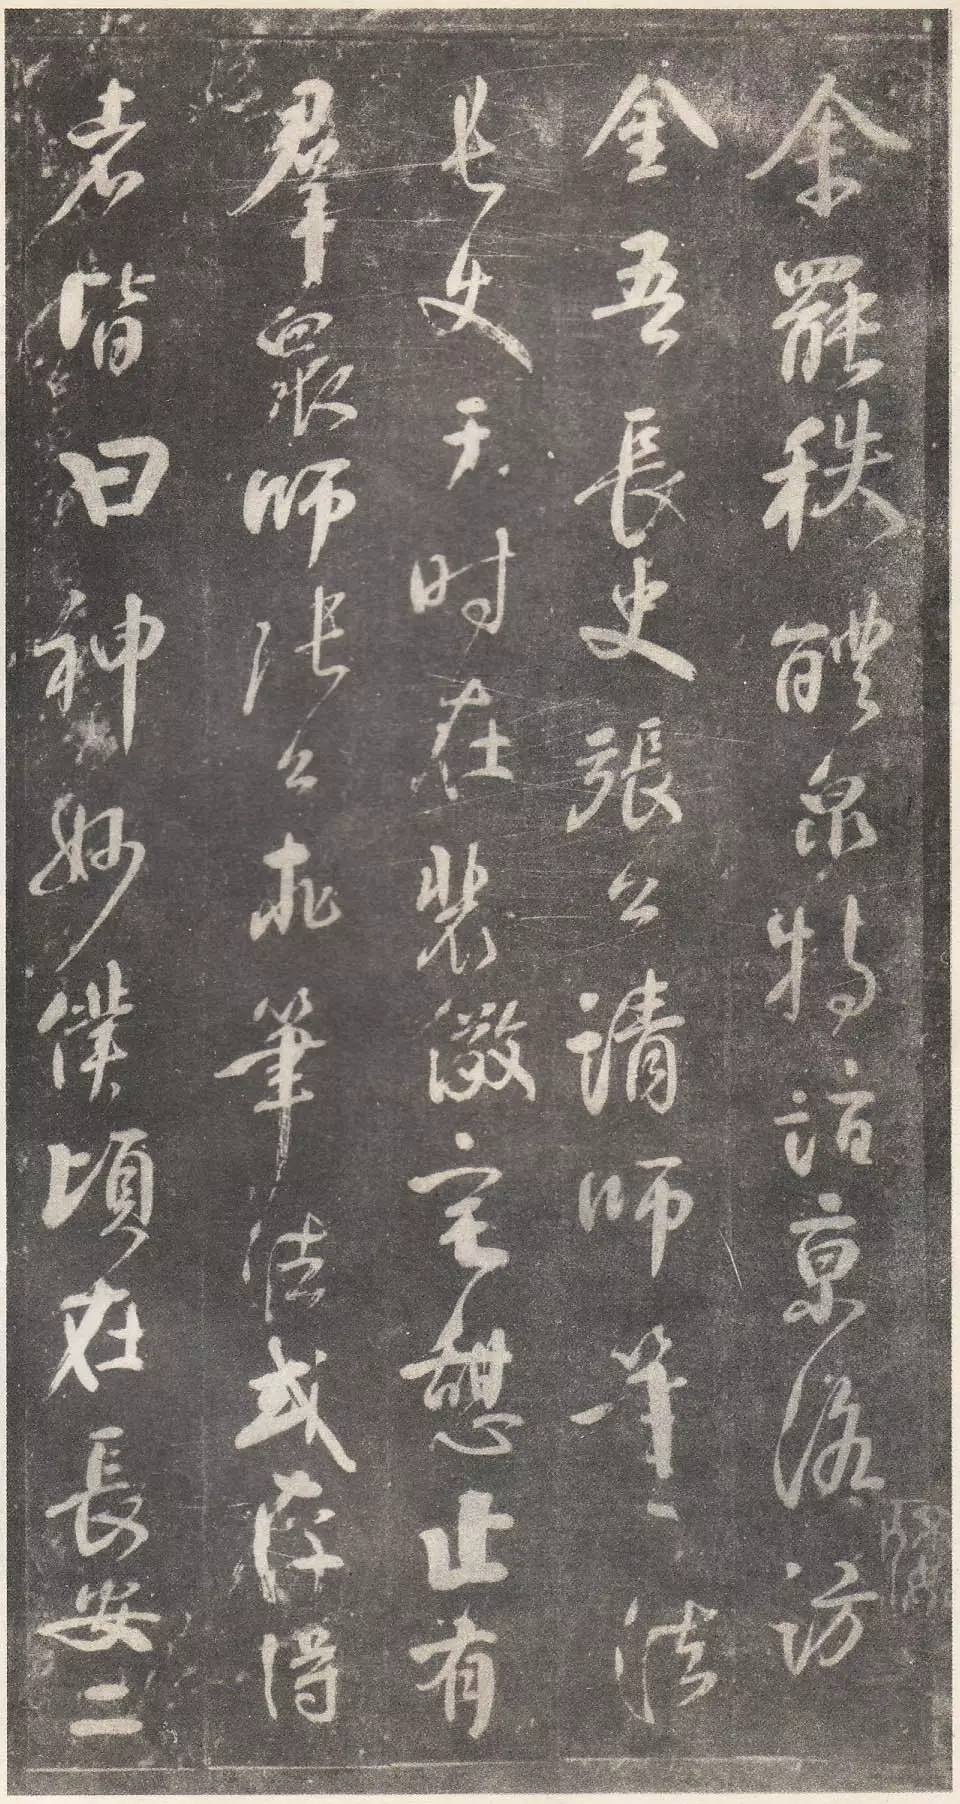 余罷秩醴泉特詣京洛訪
金吾長史張公請師筆〻法
長史于時在裴儆宅憩止有
羣衆師張公求筆法或存得
者皆曰神妙僕頃在長安二